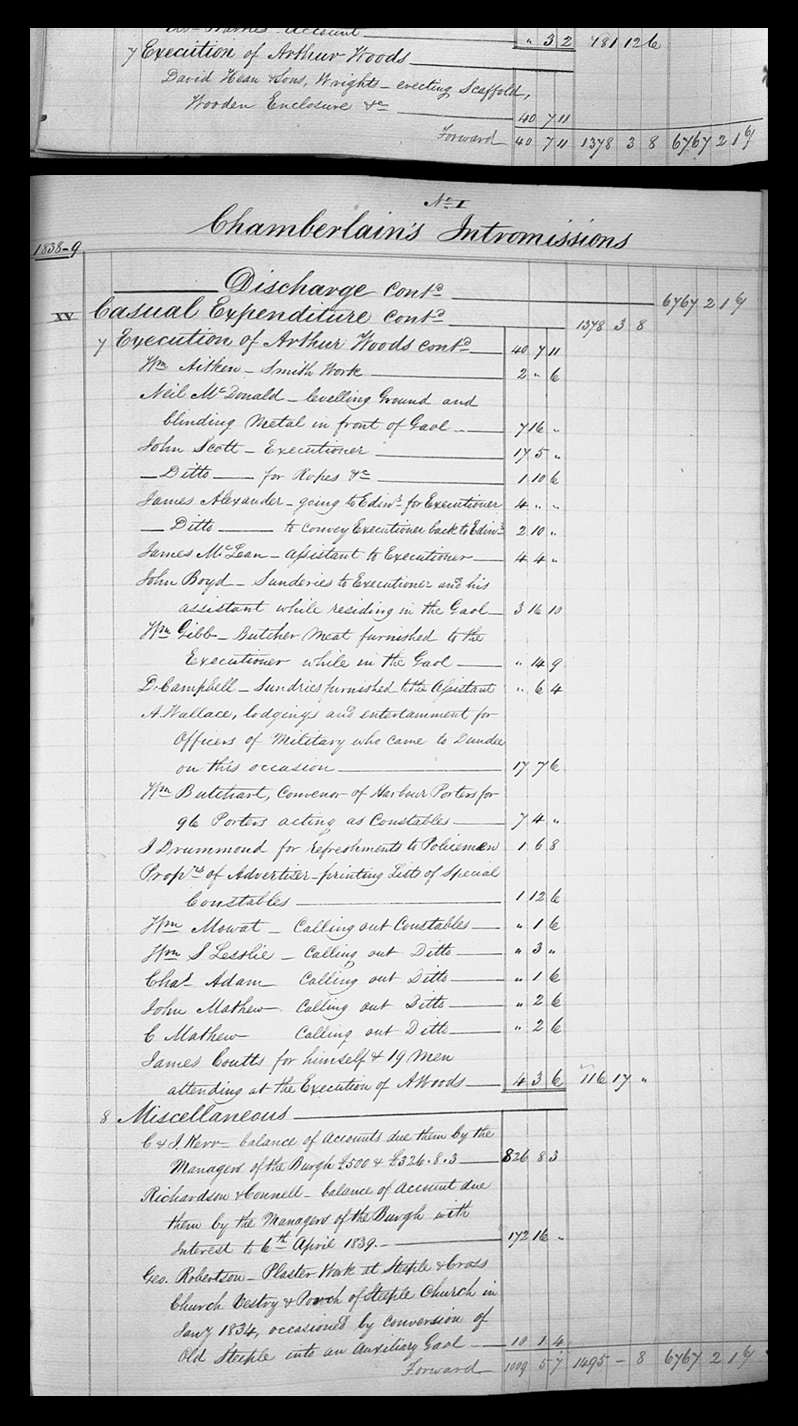 Account " 3 2 781 12 6
7 Execution of Arthur Woods
David Hean & Sons, Wrights – erecting Scaffold,
Wooden Enclosure &c 40 7 11
Forward 40 7 11 1378 3 8 6767 2 1 9/
No. I
Chamberlain's Intromissions
1838-9
Discharge Contd. 6767 2 1 9/
XV Casual Expenditure Contd. 1378 3 8
7 Execution of Arthur Woods contd. 40 7 11
Wm Aitken – Smith Work 2 " 6
Neil McDonald – levelling Ground and
blinding Metal in front of Gaol 7 16 "
John Scott – Executioner 17 5 "
Ditto for Ropes &c 1 10 6
James Alexander – going to Edinr. for Executioner 4 " "
Ditto to convey Executioner back to Edinr. 2 10 "
James McLean – Assistant to Executioner 4 4 "
John Boyd – Sunderies to Executioner and his
assistant while residing in the Gaol 3 16 10
Wm Gibb – Butcher Meat furnished to the
Executioner while in the Gaol " 14 9
D. Campbell – Sundries furnished to the Assistant " 6 4
A. Wallace, lodgings and entertainment for
Officers of Military who came to Dundee
on this occasion 17 7 6
Wm Butchart, Convenor of Harbour Porters for
96 Porters acting as Constables 7 4 "
J Drummond for refreshments to Policemen 1 6 8
Proprs. of Advertiser – printing Lists of Special
Constables 1 12 6
Wm Mowat – Calling out Constables " 1 6
Wm S Lesslie – Calling out Ditto " 3 "
Chas. Adam Calling out Ditto " 1 6
John Mathew Calling out Ditto " 2 6
C Mathew Calling out Ditto " 2 6
James Coutts for himself & 19 Men
attending at the Execution of A Woods 4 3 6 116 17 "
8 Miscellaneous
C & J. Kerr – balance of Accounts due them by the
Managers of the Burgh £500 & £326.8.3 826 8 3
Richardson & Connell – balance of Account due
them by the Managers of the Burgh with
Interest to 6th April 1839. 172 16 "
Geo. Robertson – Plaster Work at Steeple & Cross
Church Vestry & Porch of Steeple Church in
Jany 1834, occasioned by conversion of
Old Steeple into an Auxiliary Gaol 10 1 4
Forward 1009 5 7 1495 – 8 6767 2 1 9/